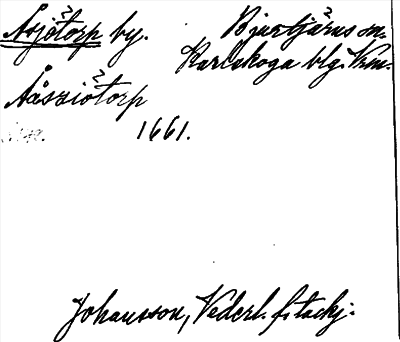 Åsjötorp by. Bjurtjärns sn.
Karlskoga blg. Vrm.
Ååssziötorp
1661.
Johansson, Vederl. f. tackj.